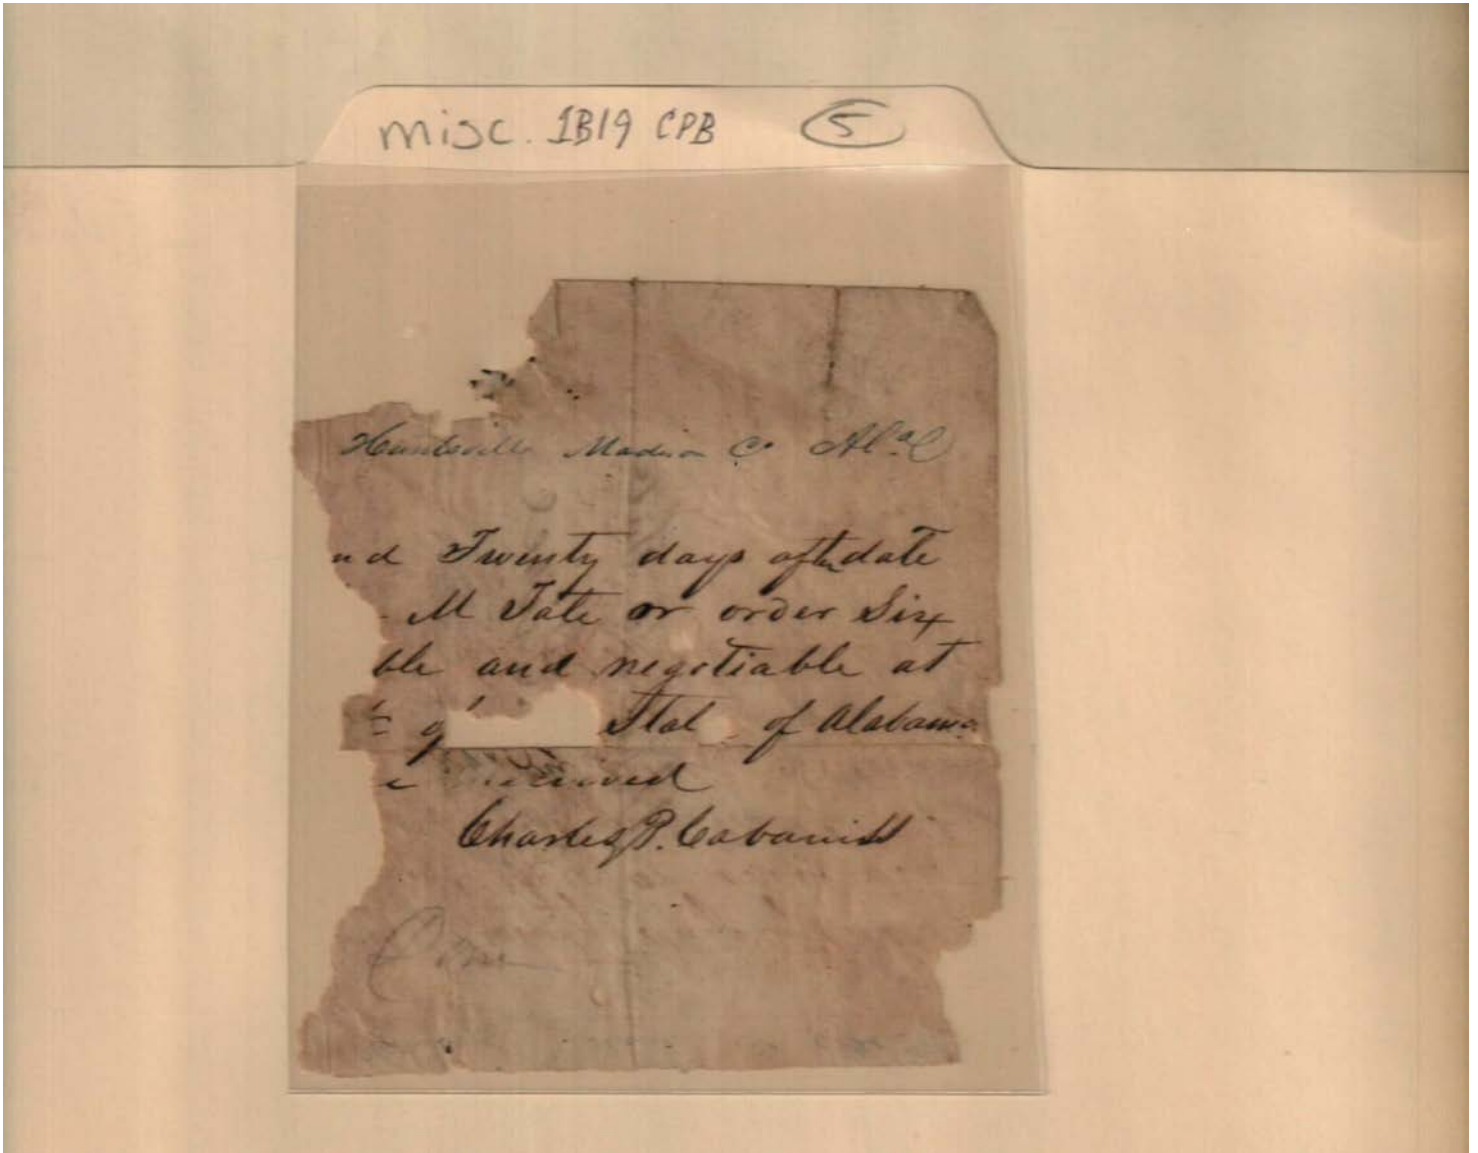 misc. 1819 CPB 5
Huntsville Madison Co Ala
nd Twenty days after date
M Tate or order Six
ble and negotiable at
Stat of Alabama
received
Charles P. Cabaniss